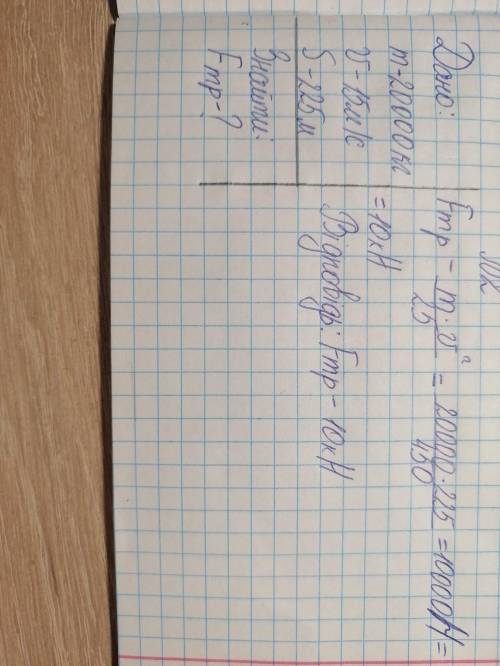 N2
Дано:
m - 20000 кг
v - 15 м/с
S - 225 м
Знайти:
Fтр - ?
Fтр - m · v² / 2S = 20000 · 225 / 450 = 10000 Н =
= 10 кН
Відповідь: Fтр - 10 кН